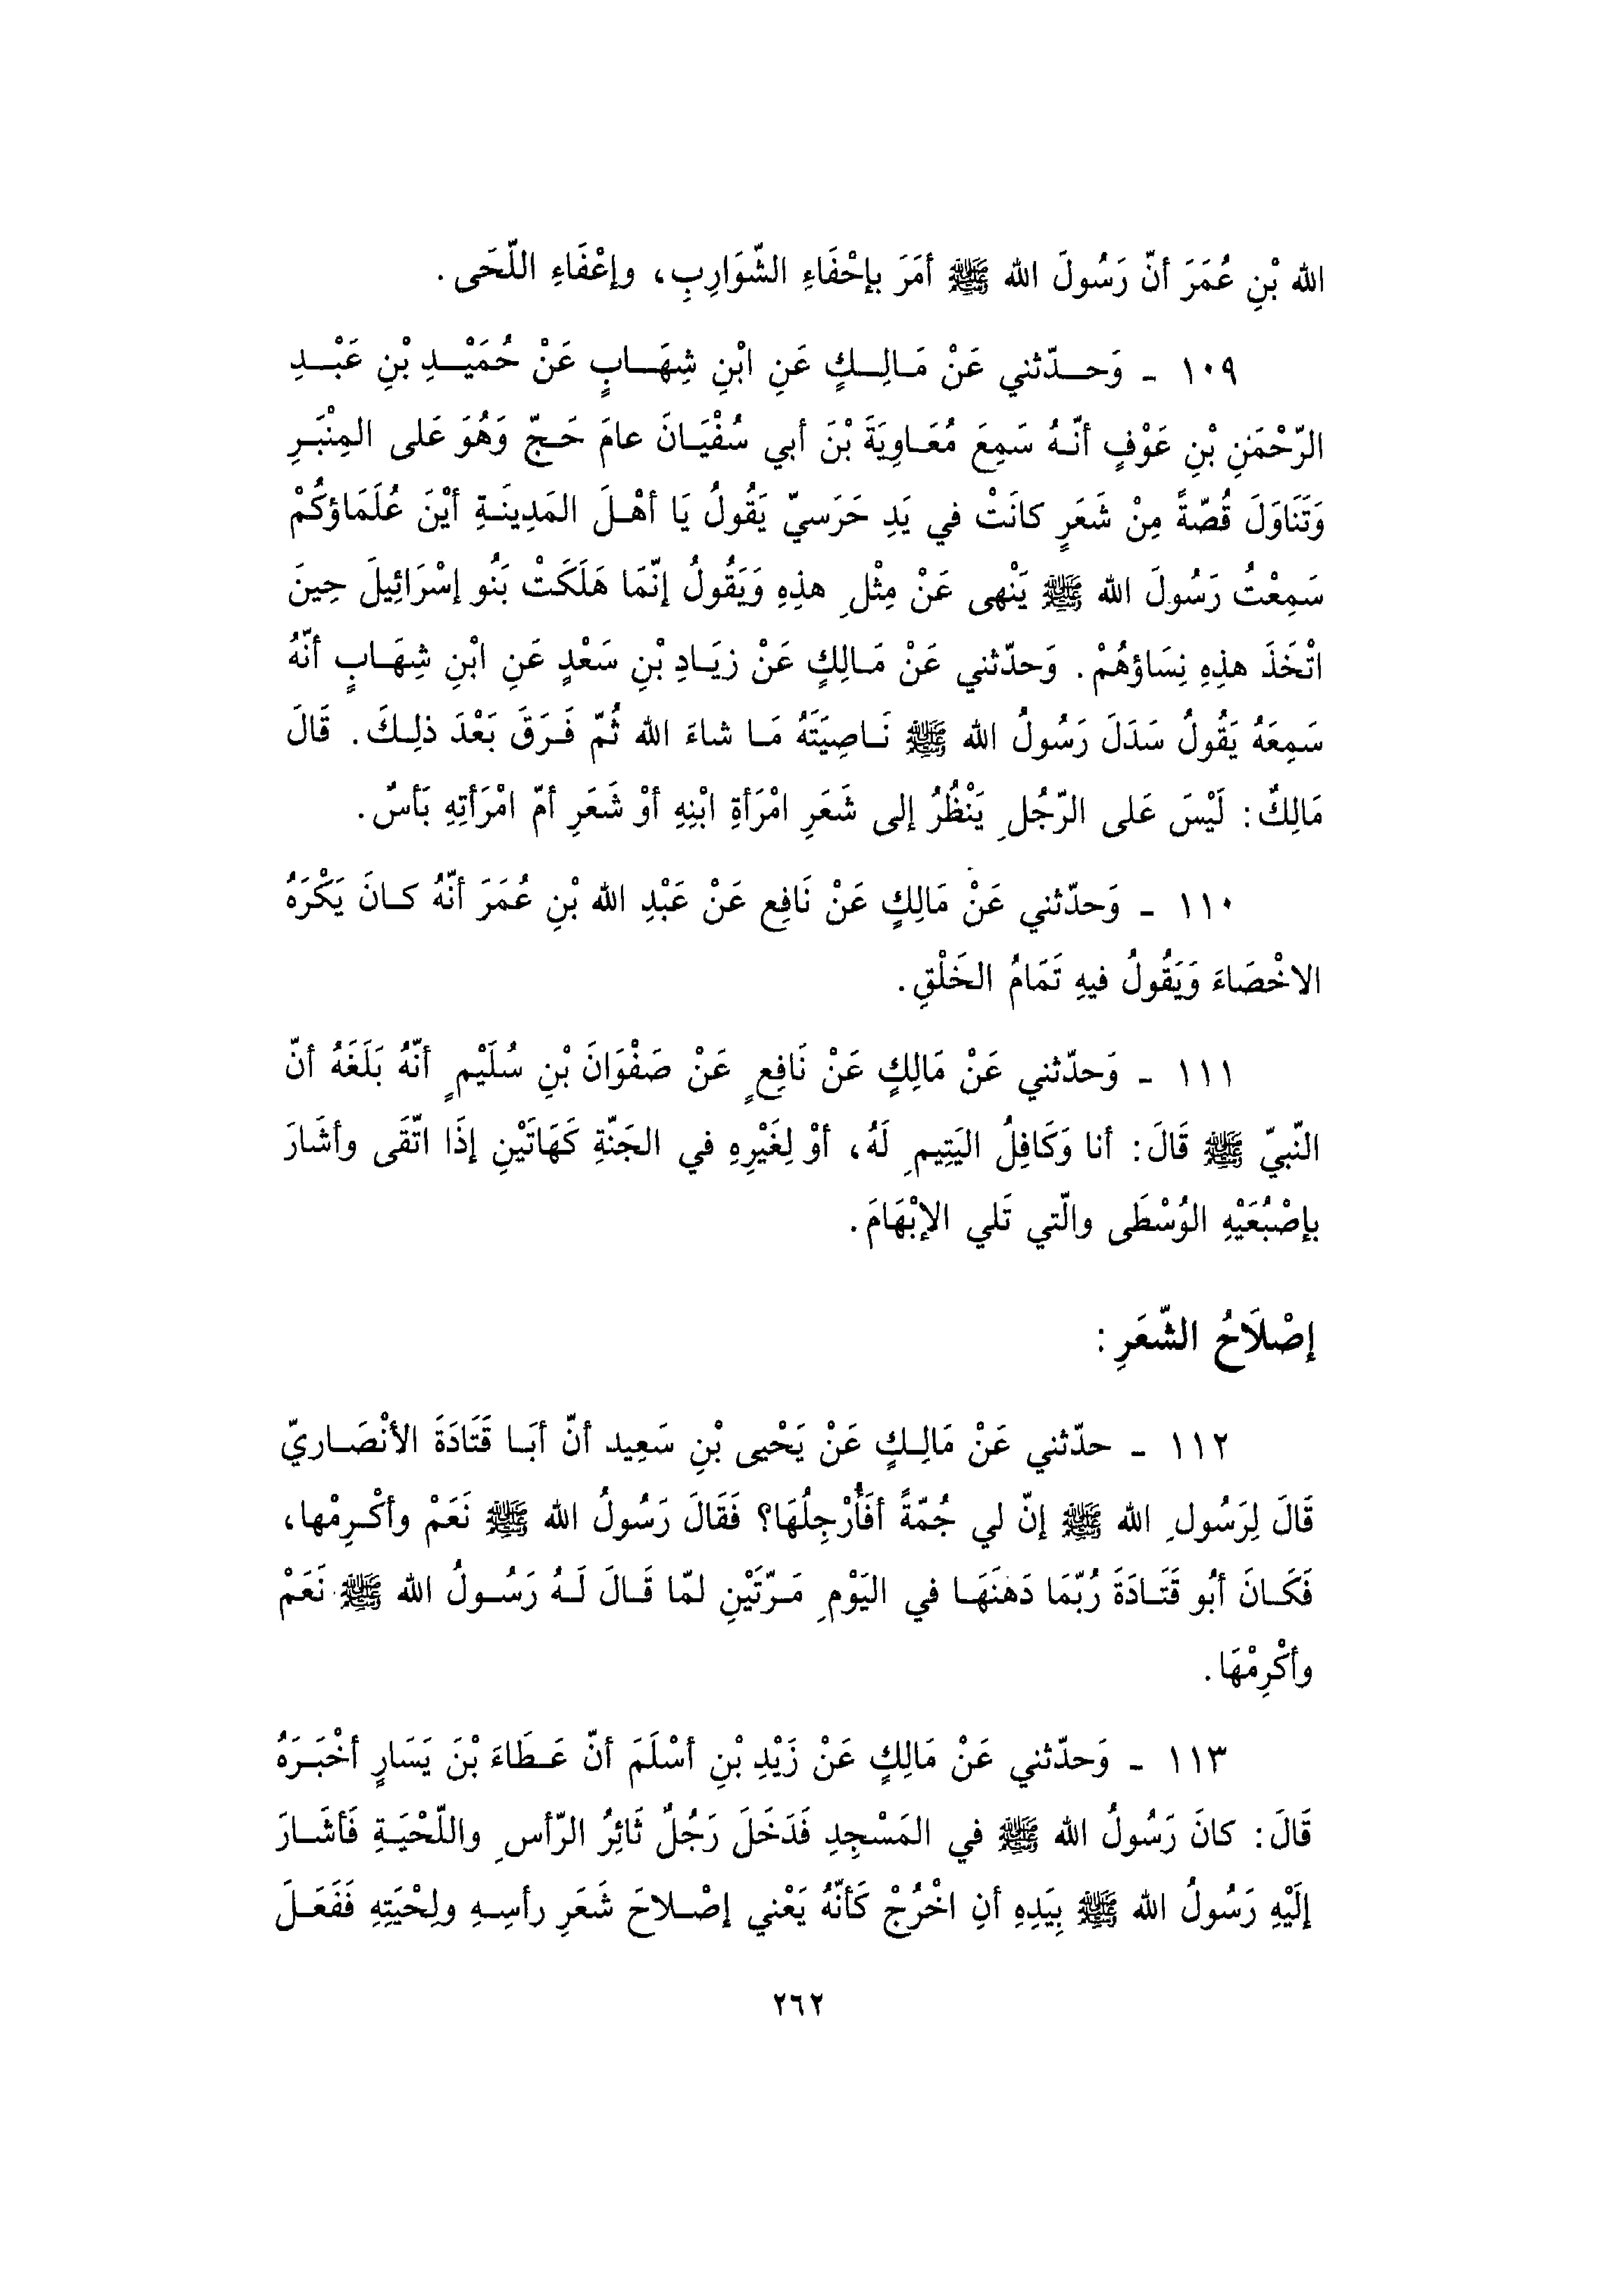 الله بْنِ عُمَرَ أنّ رَسُولَ الله ﷺ أمَرَ بإحْفَاءِ الشّوَارِبِ، وإعْفَاءِ اللّحَى.
١٠٩ ـ وَحدّثني عَنْ مَالِكٍ عَنِ ابْنِ شِهَابٍ عَنْ حُمَيْدِ بْنِ عَبْدِ
الرّحْمَنِ بْنِ عَوْفٍ أنّهُ سَمِعَ مُعَاوِيَةَ بْنَ أبي سُفْيَانَ عامَ حَجّ وَهُوَ عَلى المِنْبَرِ
وَتَنَاوَلَ قُصّةً مِنْ شَعَرٍ كانَتْ في يَدِ حَرَسيّ يَقُولُ يَا أهْلَ المَدِينَةِ أيْنَ عُلَمَاؤكُمْ
سَمِعْتُ رَسُولَ الله ﷺ يَنْهى عَنْ مِثْلِ هذِهِ وَيَقُولُ إنّمَا هَلَكَتْ بَنُو إسْرَائِيلَ حِينَ
اتْخَذَ هذِهِ نِسَاؤهُمْ. وَحدّثني عَنْ مَالِكٍ عَنْ زيَادِ بْنِ سَعْدٍ عَنِ ابْنِ شِهَابٍ أنّهُ
سَمِعَهُ يَقُولُ سَدَلَ رَسُولُ الله ﷺ نَاصِيَتَهُ مَا شاءَ الله ثُمّ فَرَقَ بَعْدَ ذلِكَ. قَالَ
مَالِكٌ: لَيْسَ عَلى الرّجُلِ يَنْظُرُ إلى شَعَرِ امْرَأةِ ابْنِهِ أوْ شَعَرِ أمّ امْرَأتِهِ بَأسٌ.
١١٠ ـ وَحدّثني عَنْ مَالِكٍ عَنْ نَافِع عَنْ عَبْدِ الله بْنِ عُمَرَ أنّهُ كانَ يَكْرَهُ
الاخْصَاءَ وَيَقُولُ فيهِ تَمَامُ الخَلْقِ.
١١١ ـ وَحدّثني عَنْ مَالِكٍ عَنْ نَافِعٍ عَنْ صَفْوَانَ بْنِ سُلَيْمٍ أنّهُ بَلَغَهُ أنّ
النّبيّ ﷺ قَالَ: أنا وَكَافِلُ اليَتِيمِ لَهُ، أوْ لِغَيْرِهِ في الجَنّةِ كَهَاتَيْنِ إذَا اتّقَى وأشَارَ
بإصْبُعَيْهِ الوُسْطَى والّتي تَلي الإبْهَامَ.
إصْلَاحُ الشّعَرِ:
١١٢ ـ حدّثني عَنْ مَالِكٍ عَنْ يَحْيى بْنِ سَعِيد أنّ أبَا قَتَادَةَ الأنْصَاريّ
قَالَ لِرَسُولِ الله ﷺ إنّ لي جُمّةً أفَأُرْجِلُهَا؟ فَقَالَ رَسُولُ الله ﷺ نَعَمْ وأكْرِمْها،
فَكَانَ أبُو قَتَادَةَ رُبّمَا دَهنَهَا في اليَوْمِ مَرّتَيْنِ لمّا قَالَ لَهُ رَسُولُ الله ﷺ نَعَمْ
وأكْرِمْهَا.
١١٣ ـ وَحدّثني عَنْ مَالِكٍ عَنْ زَيْدِ بْنِ أسْلَمَ أنّ عَطَاءَ بْنَ يَسَارٍ أخْبَرَهُ
قَالَ: كانَ رَسُولُ الله ﷺ في المَسْجِدِ فَدَخَلَ رَجُلٌ ثَائِرُ الرّأسِ واللّحْيَةِ فَأشَارَ
إلَيْهِ رَسُولُ الله ﷺ بِيَدِهِ أنِ اخْرُجْ كَأنّهُ يَعْني إصْلاحَ شَعَرِ رأسِهِ ولِحْيَتِهِ فَفَعَلَ
٢٦٢